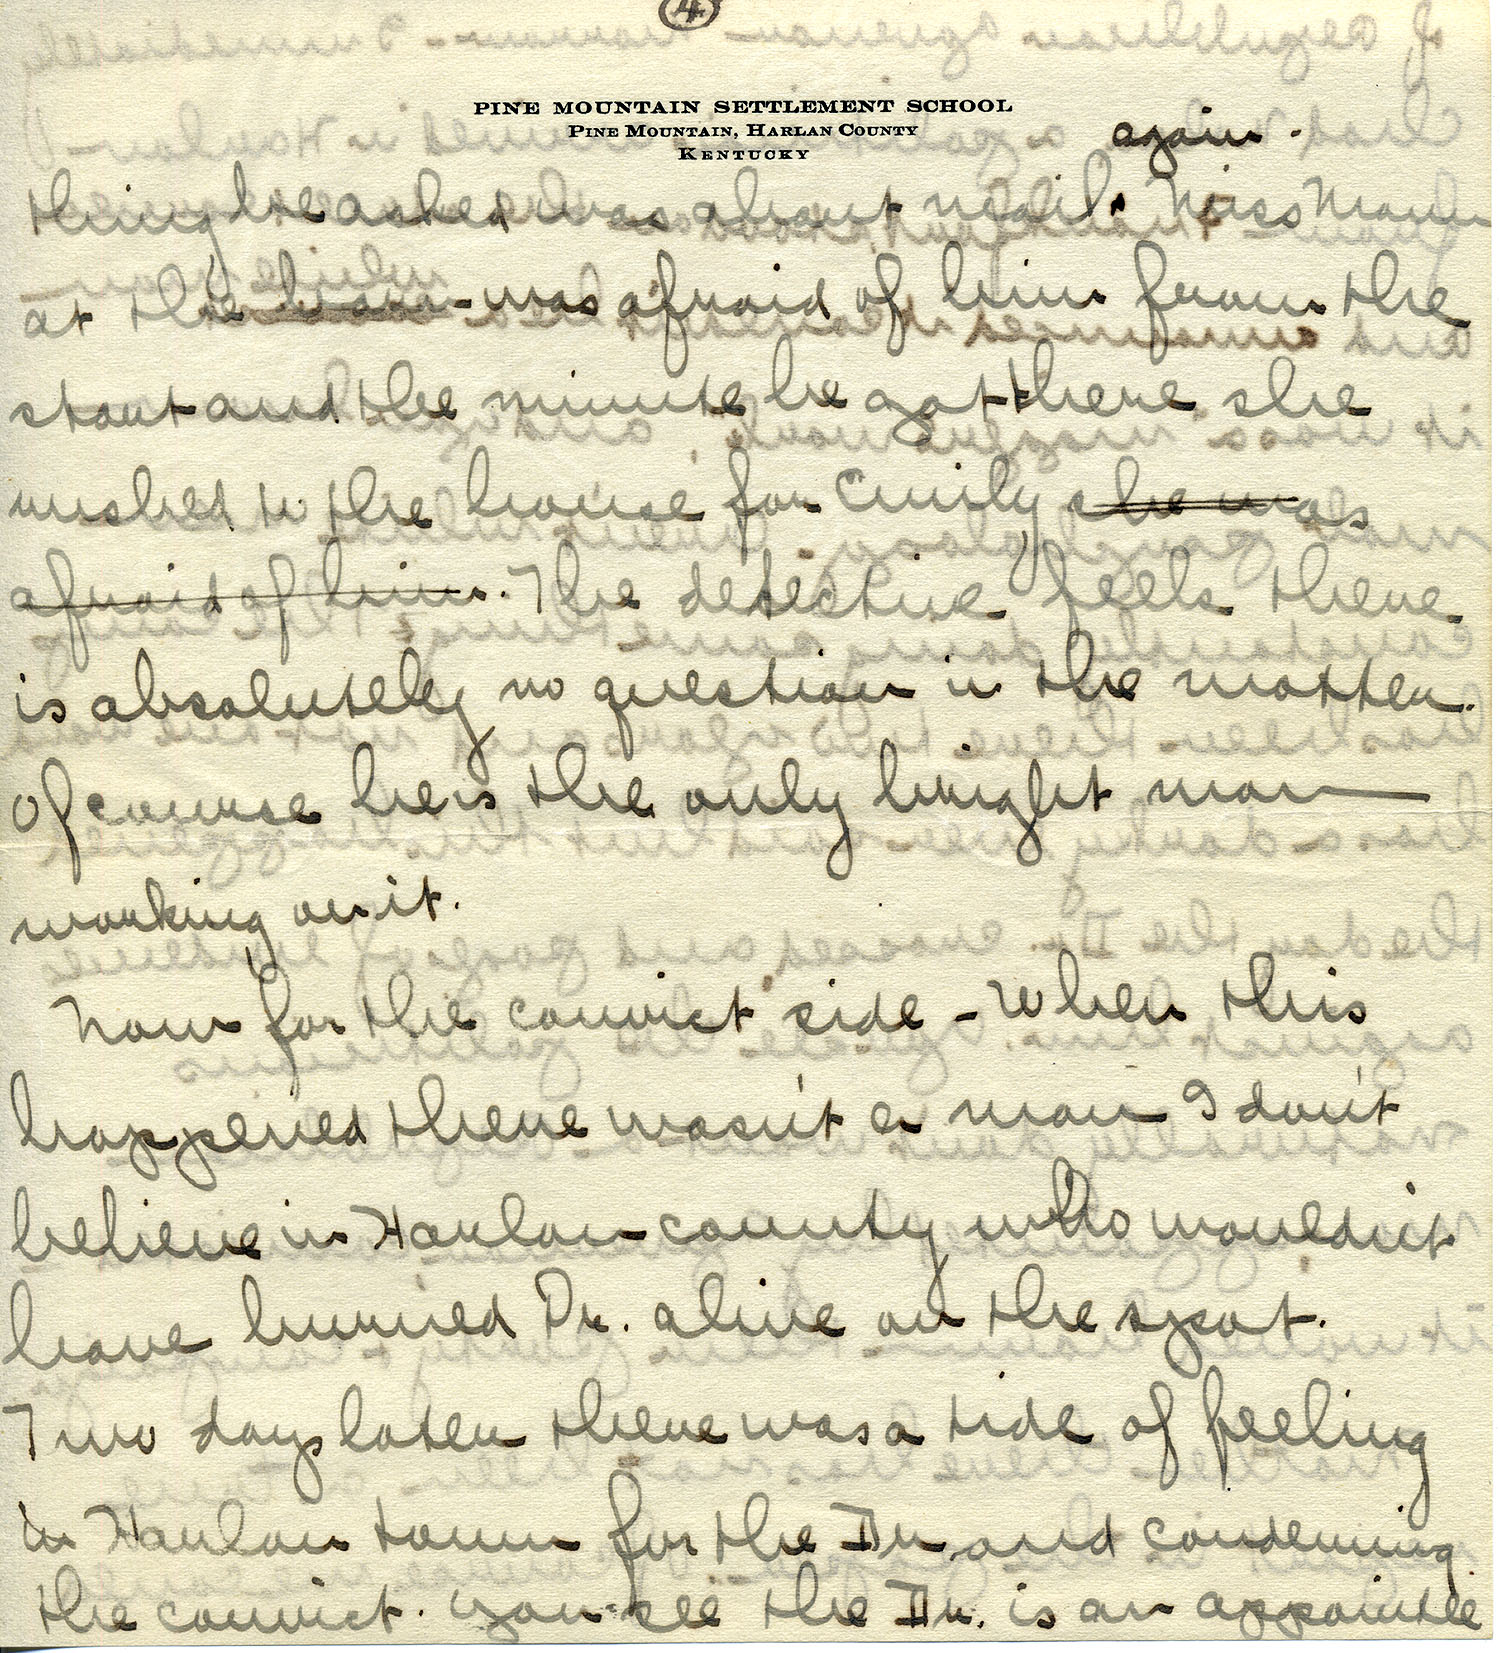 4
PINE MOUNTAIN SETTLEMENT SCHOOL
PINE MOUNTAIN, HARLAN COUNTY
KENTUCKY
again.
thing he asked was about mail. Miss Mann
at the barn was afraid of him from the
start and the minute he got there she
rushed to the house for Emily she was
afraid of him. The detective feels there
is absolutely no question in the matter.
Of course he is the only bright man
working on it.
Now for the convict side - When this
happened there wasn't a man I don't
believe in Harlan county who wouldn't
have burned Dr. alive on the spot.
Two days later there was a tide of feeling
in Harlan town for the Dr. and condeming
the convict. You see the Dr. is an appointee